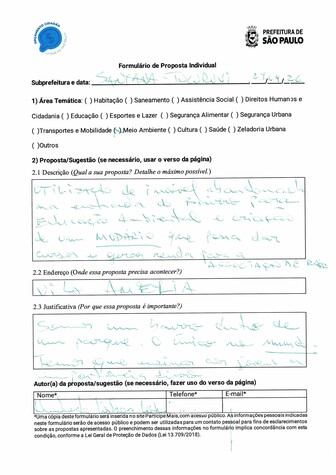 ORÇAMENTO CIDADÃO
PREFEITURA DE
SÃO PAULO
Formulário de Proposta Individual
Subprefeitura e data: SANTANA - TUCURUVI
1) Área Temática: ( ) Habitação ( ) Saneamento ( ) Assistência Social ( ) Direitos Humanos e
Cidadania ( ) Educação ( ) Esportes e Lazer ( ) Segurança Alimentar ( ) Segurança Urbana
( )Transportes e Mobilidade ( ) Meio Ambiente ( ) Cultura ( ) Saúde ( ) Zeladoria Urbana
( )Outros
2) Proposta/Sugestão (se necessário, usar o verso da página)
2.1 Descrição (Qual a sua proposta? Detalhe o máximo possível.)
UTILIZAÇÃO de imóvel abandonado
na entrada do para
Educação Ambiental e criação
de um que possa dar
cursos e renda para a
2.2 Endereço (Onde essa proposta precisa acontecer?)
VILA AMELIA
2.3 Justificativa (Por que essa proposta é importante?)
Somos um bairro dentro de
um parque. O único no mundo.
Temos que
Autor(a) da proposta/sugestão (se necessário, fazer uso do verso da página)
Nome*. Telefone* E-mail*
*Uma cópia deste formulário será inserida no site Participe Mais, com acesso público. As informações pessoais indicadas
neste formulário serão de acesso público e podem ser utilizadas para um contato pessoal para fins de esclarecimentos
sobre as propostas apresentadas. O preenchimento dessas informações no formulário implica concordância com esta
condição, conforme a Lei Geral de Proteção de Dados (Lei 13.709/2018).